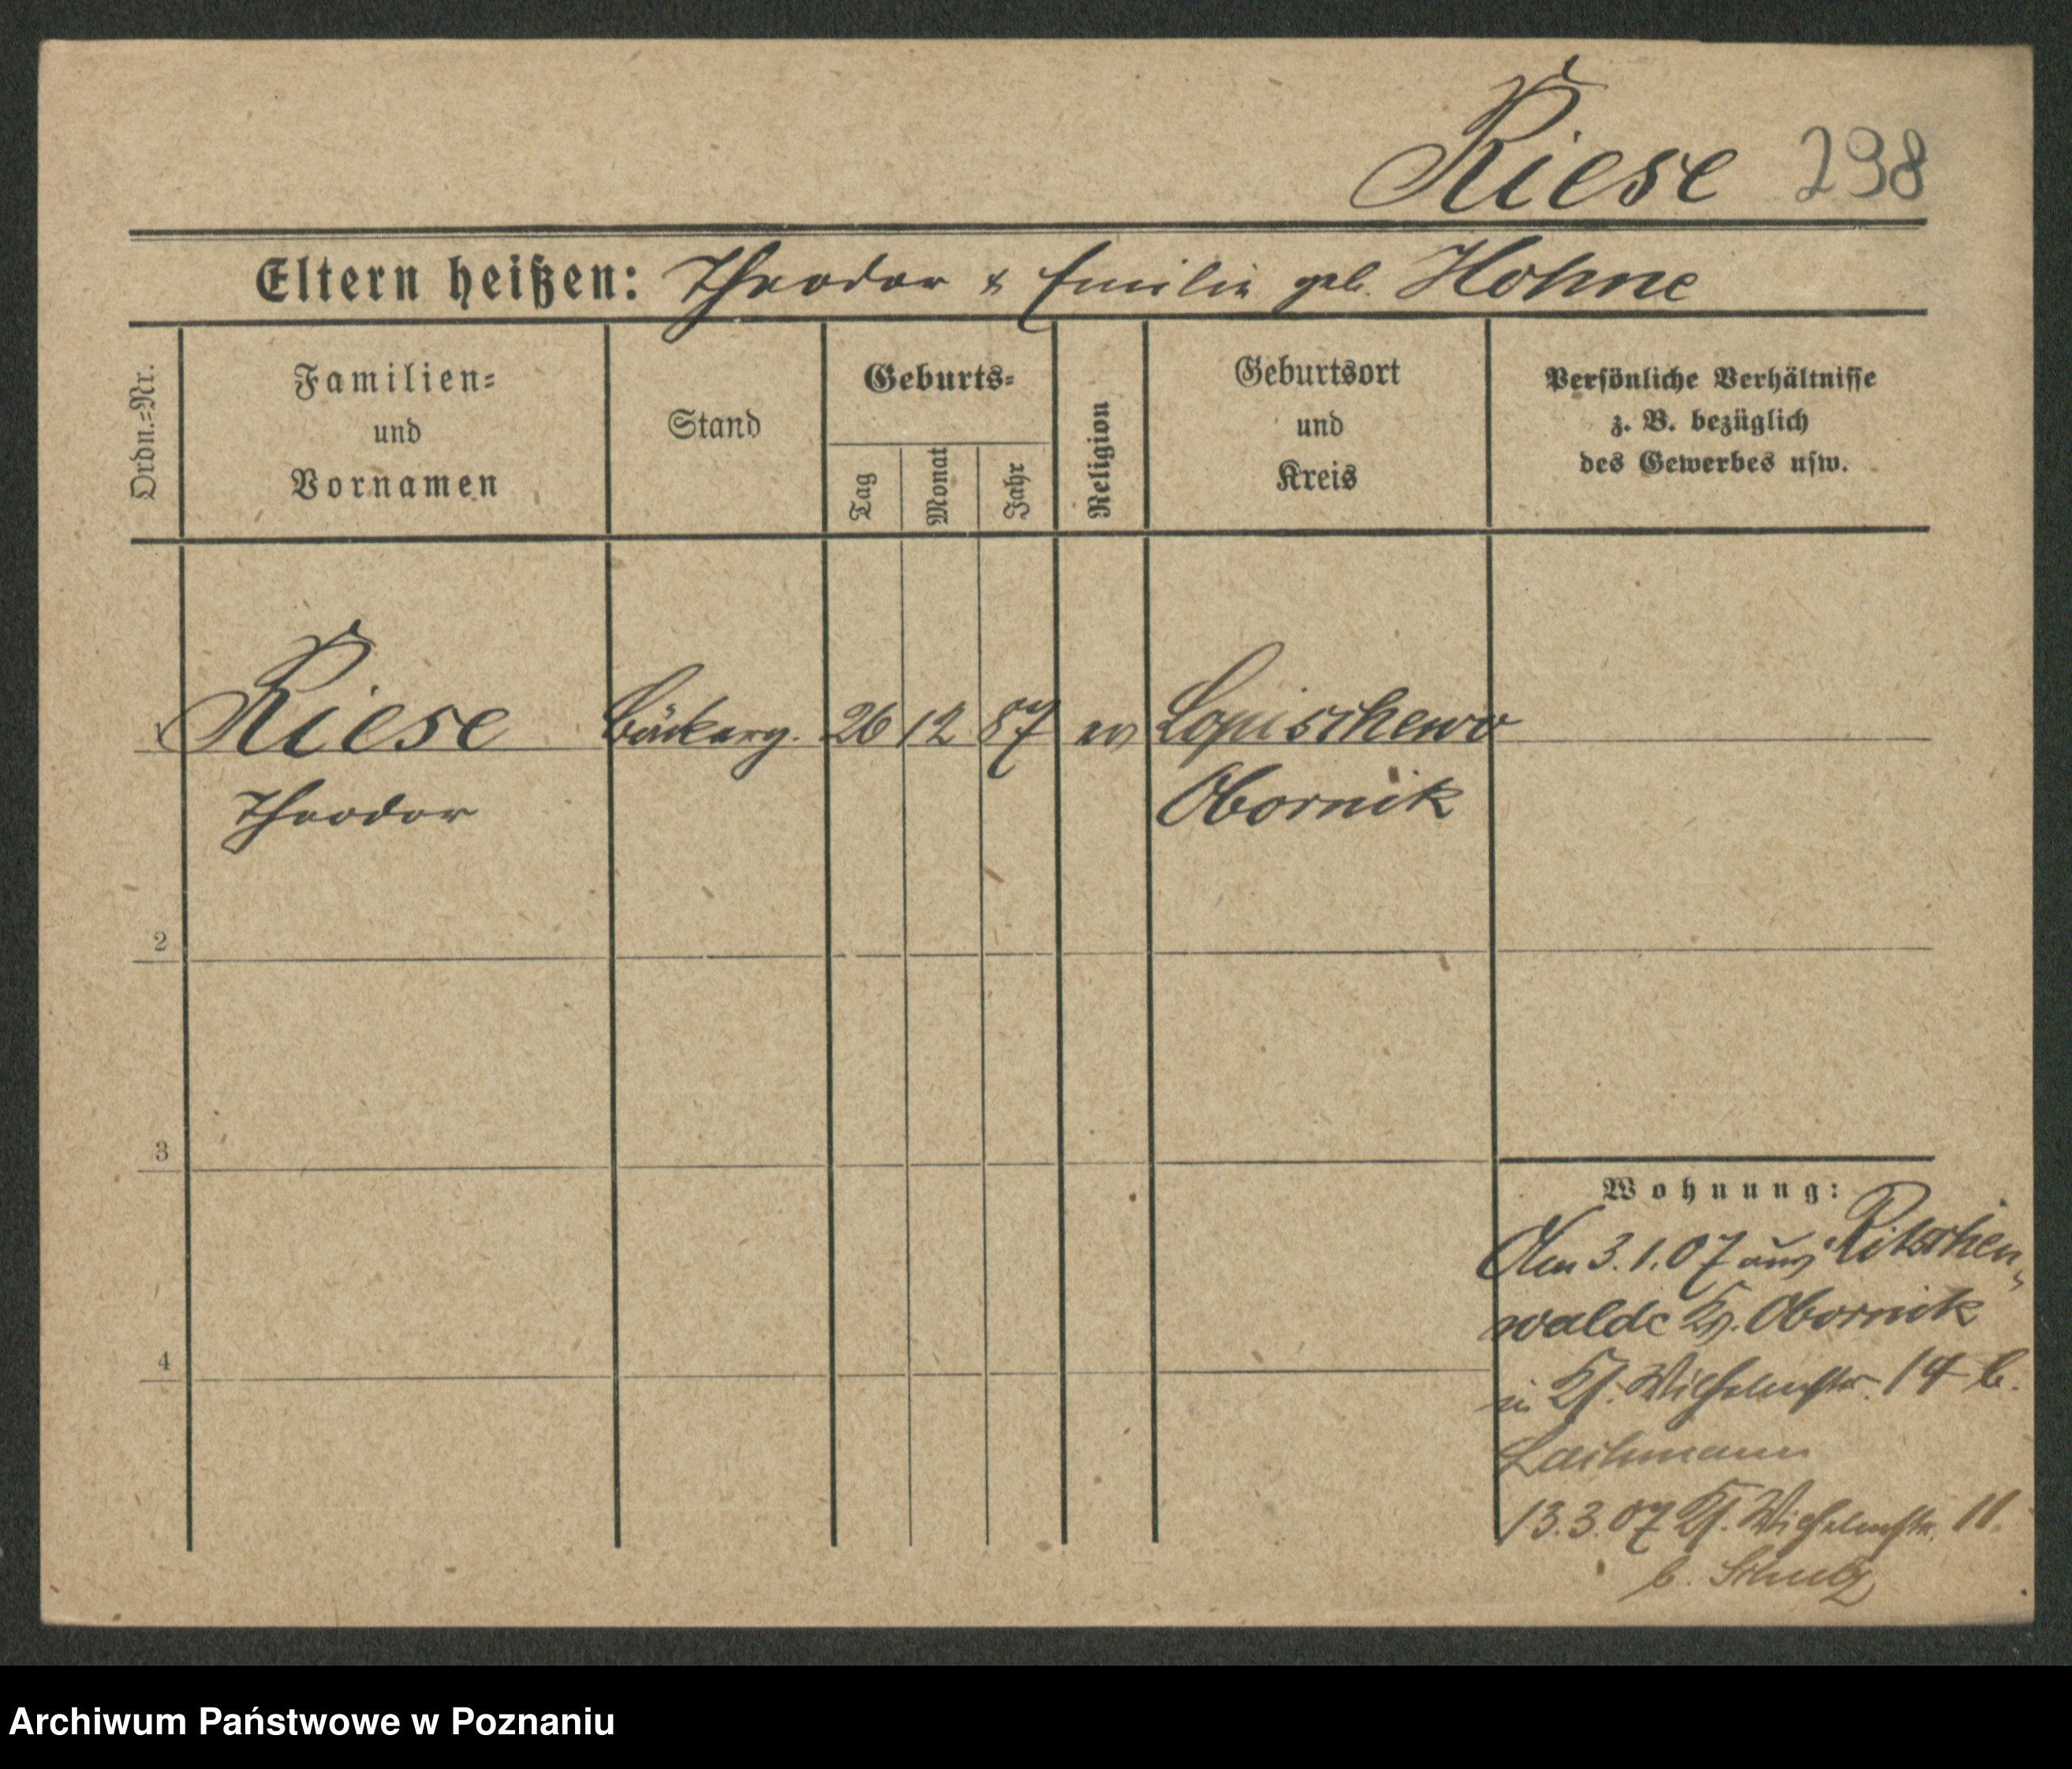 Riese 298
Eltern heißen: Theodor & Emilie geb. Hohne
Ordn.=Nr.
Familien=
und
Vornamen
Stand
Geburts=
Tag
Monat
Jahr
Religion
Geburtsort
und
Kreis
Persönliche Verhältnisse
z. B. bezüglich
des Gewerbes usw.
Riese Bäckerg. 26 12 87 ev Lopischewo
Theodor Obornik
2
3
4
Wohnung:
Am 3.1.07 aus Ritschen,
walde Kr. Obornik
in Kl. Wilhelmstr. 14 b.
Lachmann
13.3.07 Kl. Wilhelmstr. 11.
b. Schulz
Archiwum Państwowe w Poznaniu